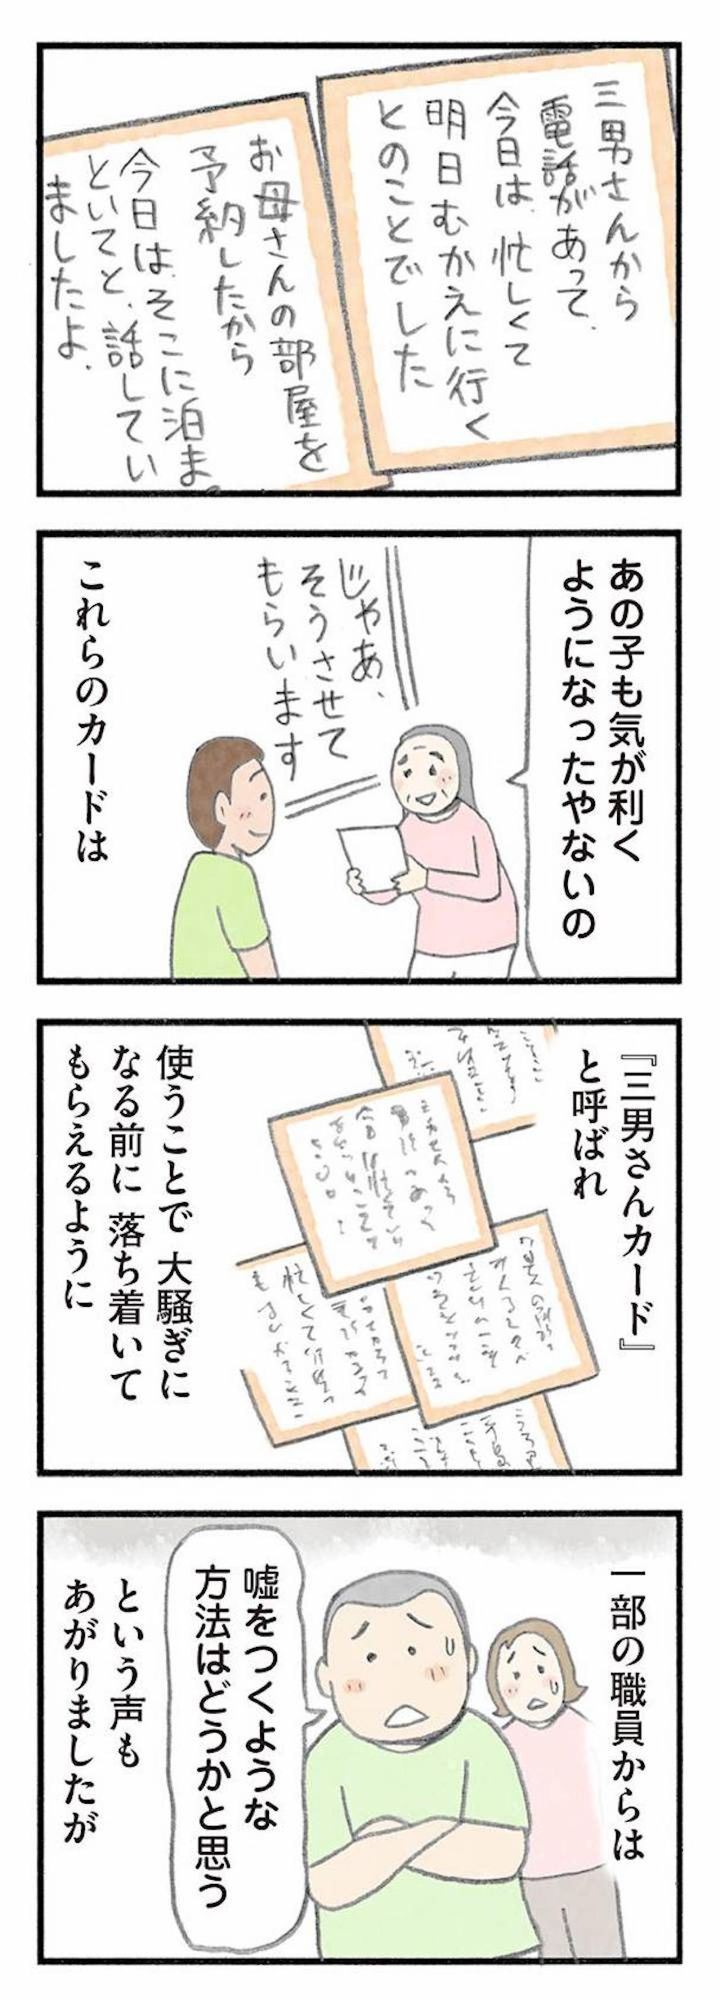 三男さんから
電話があって、
今日は、忙しくて
明日むかえに行く
とのことでした
お母さんの部屋を
予約したから
今日は、そこに泊まっ
といてと、話してい
ましたよ、
あの子も気が利く
ようになったやないの
じゃあ、
そうさせて
もらいます
これらのカードは
『三男さんカード』
と呼ばれ
使うことで 大騒ぎに
なる前に 落ち着いて
もらえるように
一部の職員からは
嘘をつくような
方法はどうかと思う
という声も
あがりましたが